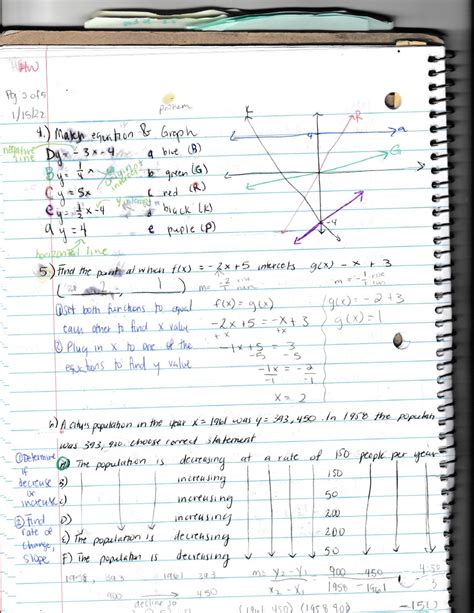 HW
Pg 3 of 5
1/15/22
problem
4.) Match equation & Graph
negative line
D y = -3x-4 a blue (B)
B y = 1/4 x b green (G)
C y = 5x c red (R)
e y = 1/2 x-4 d black (K)
a y = 4 e purple (P)
horizontal line
K
R
a
G
4
-4
P
5.) Find the point at which f(x) = -2x+5 intercets g(x) -x + 3
( 2 , 1 )
① set both functions to equal each other to find x value
② Plug in x to one of the equations to find y value
f(x) = g(x)
-2x+5 = -x+3
+x +x
-1x+5 = 3
-5 -5
-1x = -2
-1 -1
x = 2
g(x) = -2 + 3
g(x) = 1
6) A city's population in the year x = 1961 was y = 393,450. In 1958 the population
was 393,900. choose correct statement
① Determine if decrease or increase
② find rate of change, slope
A) The population is decreasing at a rate of 150 people per year
B) increasing 150
C) increasing 50
D) increasing 200
E) The population is decreasing 200
F) The population is decreasing 50
1958, 393 1961 393
m = y2-y1 / x2-x1 = 900 450 / 1958 - 1961